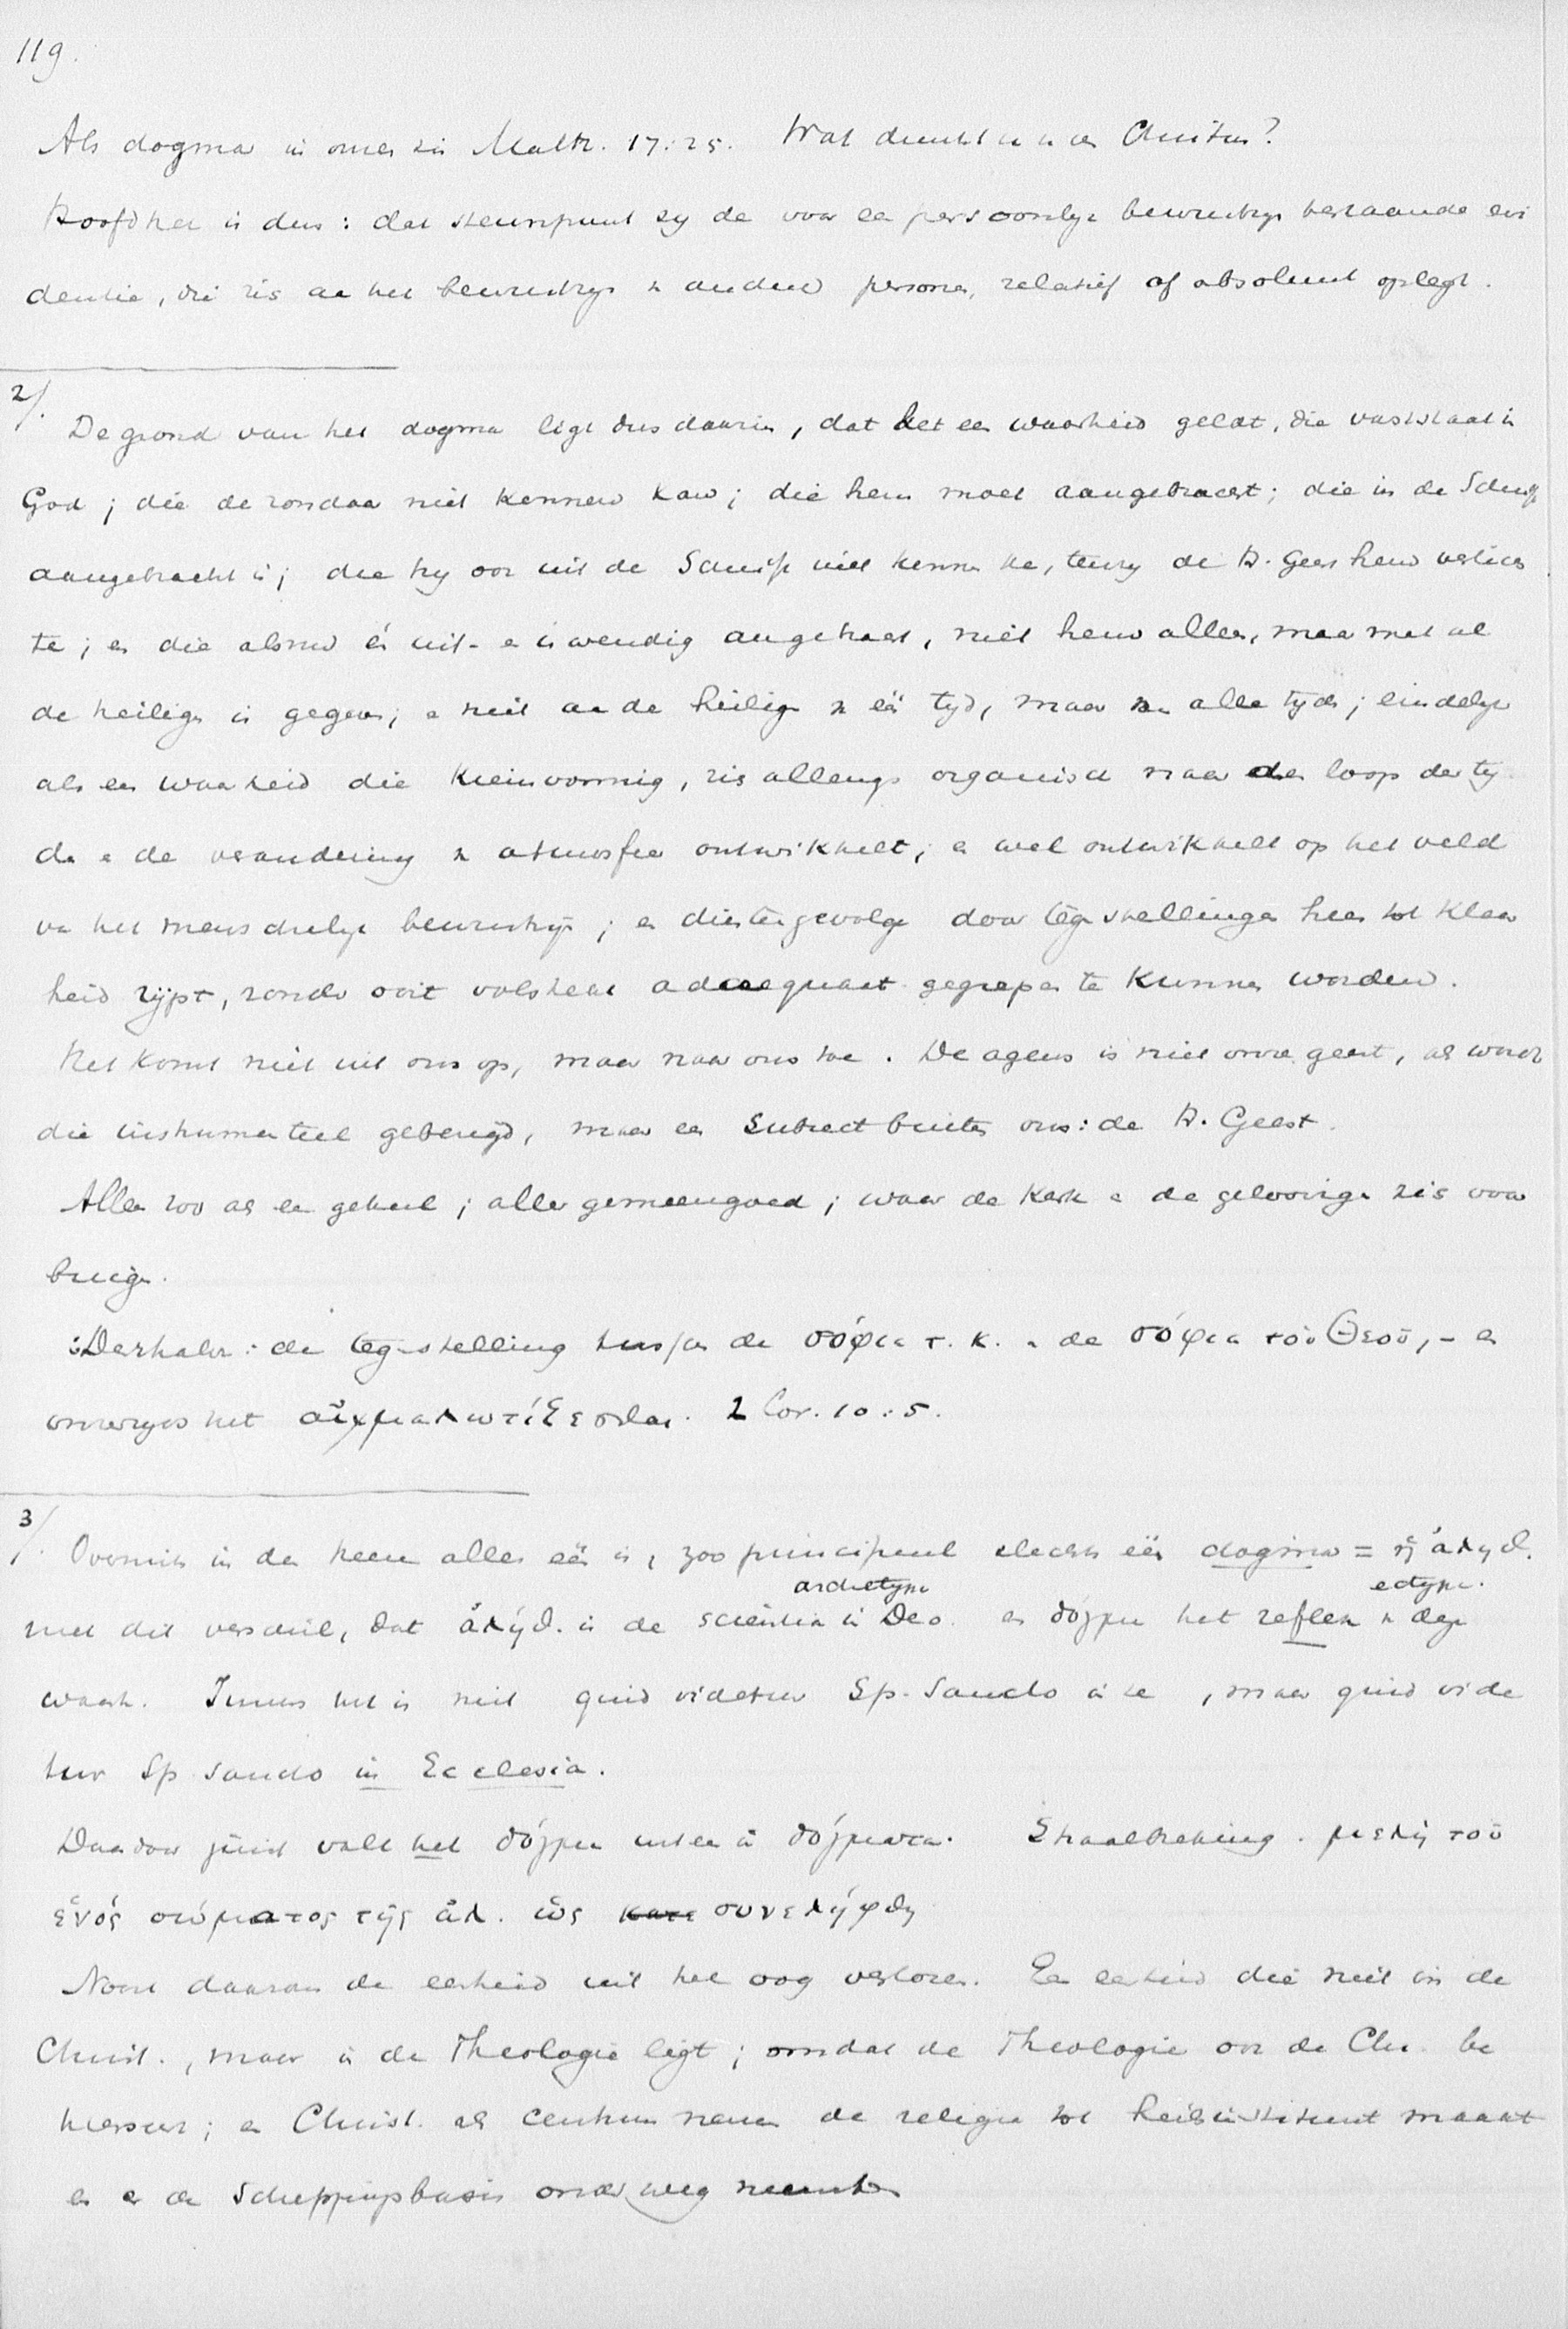 119.
Als dogma in onzen zin Matth. 17:25. Wat dunkt u van den Christus?
Hoofdzaak is dus: dat steunpunt zij de voor een persoonlijk bewustzijn bestaande evi
dentie, die zich aan het bewustzijn van andere personen, relatief of absoluut oplegt.
2/. De grond van het dogma ligt dus daarin, dat het een waarheid geldt, die vaststaat in
God; die de zondaar niet kennen kan; die hem moet aangebracht; die in de Schrift
aangebracht is; die hij ook uit de Schrift niet kennen kan, tenzij de H. Geest hem verlich
te; en die alsnu én uit- en inwendig aangebracht, niet hem alleen, maar met al
de heiligen is gegeven; en niet aan de heiligen van één tijd, maar van alle tijden; eindelijk
als een waarheid die kiemvormig, zich allengs organisch naar den loop der tij
den en de verandering van atmosfeer ontwikkelt; en wel ontwikkelt op het veld
van het menschelijk bewustzijn; en dientengevolge door tegenstellingen heen tot klaar
heid rijpt, zonder ooit volstrekt adaequaat gegrepen te kunnen worden.
Het komt niet uit ons op, maar naar ons toe. De agens is niet onze geest, al wordt
die instrumenteel gebezigd, maar een subject buiten ons: de H. Geest.
Alles zoo als een geheel; aller gemeengoed; waar de Kerk en de geloovigen zich voor
buigen.
Derhalve: de tegenstelling tusschen de σόφια τ. κ. en de σόφια τοῦ Θεοῦ, - en
onzerzijds het αἰχμαλωτίζεσθαι. 2 Cor. 10:5.
3/. Overmits in den heere alles één is, zoo principieel slechts één dogma = ἡ ἀληθ.
archetype ectype.
met dit verschil, dat ἀλήθ. is de scientia in Deo en δόγμα het reflex van deze
waarh. Immers het is niet quid videtur Sp. Sancto in se, maar quid vide
tur Sp Sancto in Ecclesia.
Daardoor juist valt het δόγμα uiteen in δόγματα. Straalbreking. μελη τοῦ
ἑνός σώματος τῆς ἀλ. ὡς κατε συνελήφθη
Nooit daarom de eenheid uit het oog verloren. Een eenheid die niet in de
Christ., maar in de Theologie ligt; omdat de Theologie ook de Chr. be
heerscht; en Christ. als centrum nemen de religie tot heilsinstituut maakt
en er de Scheppingsbasis onder weg neemt